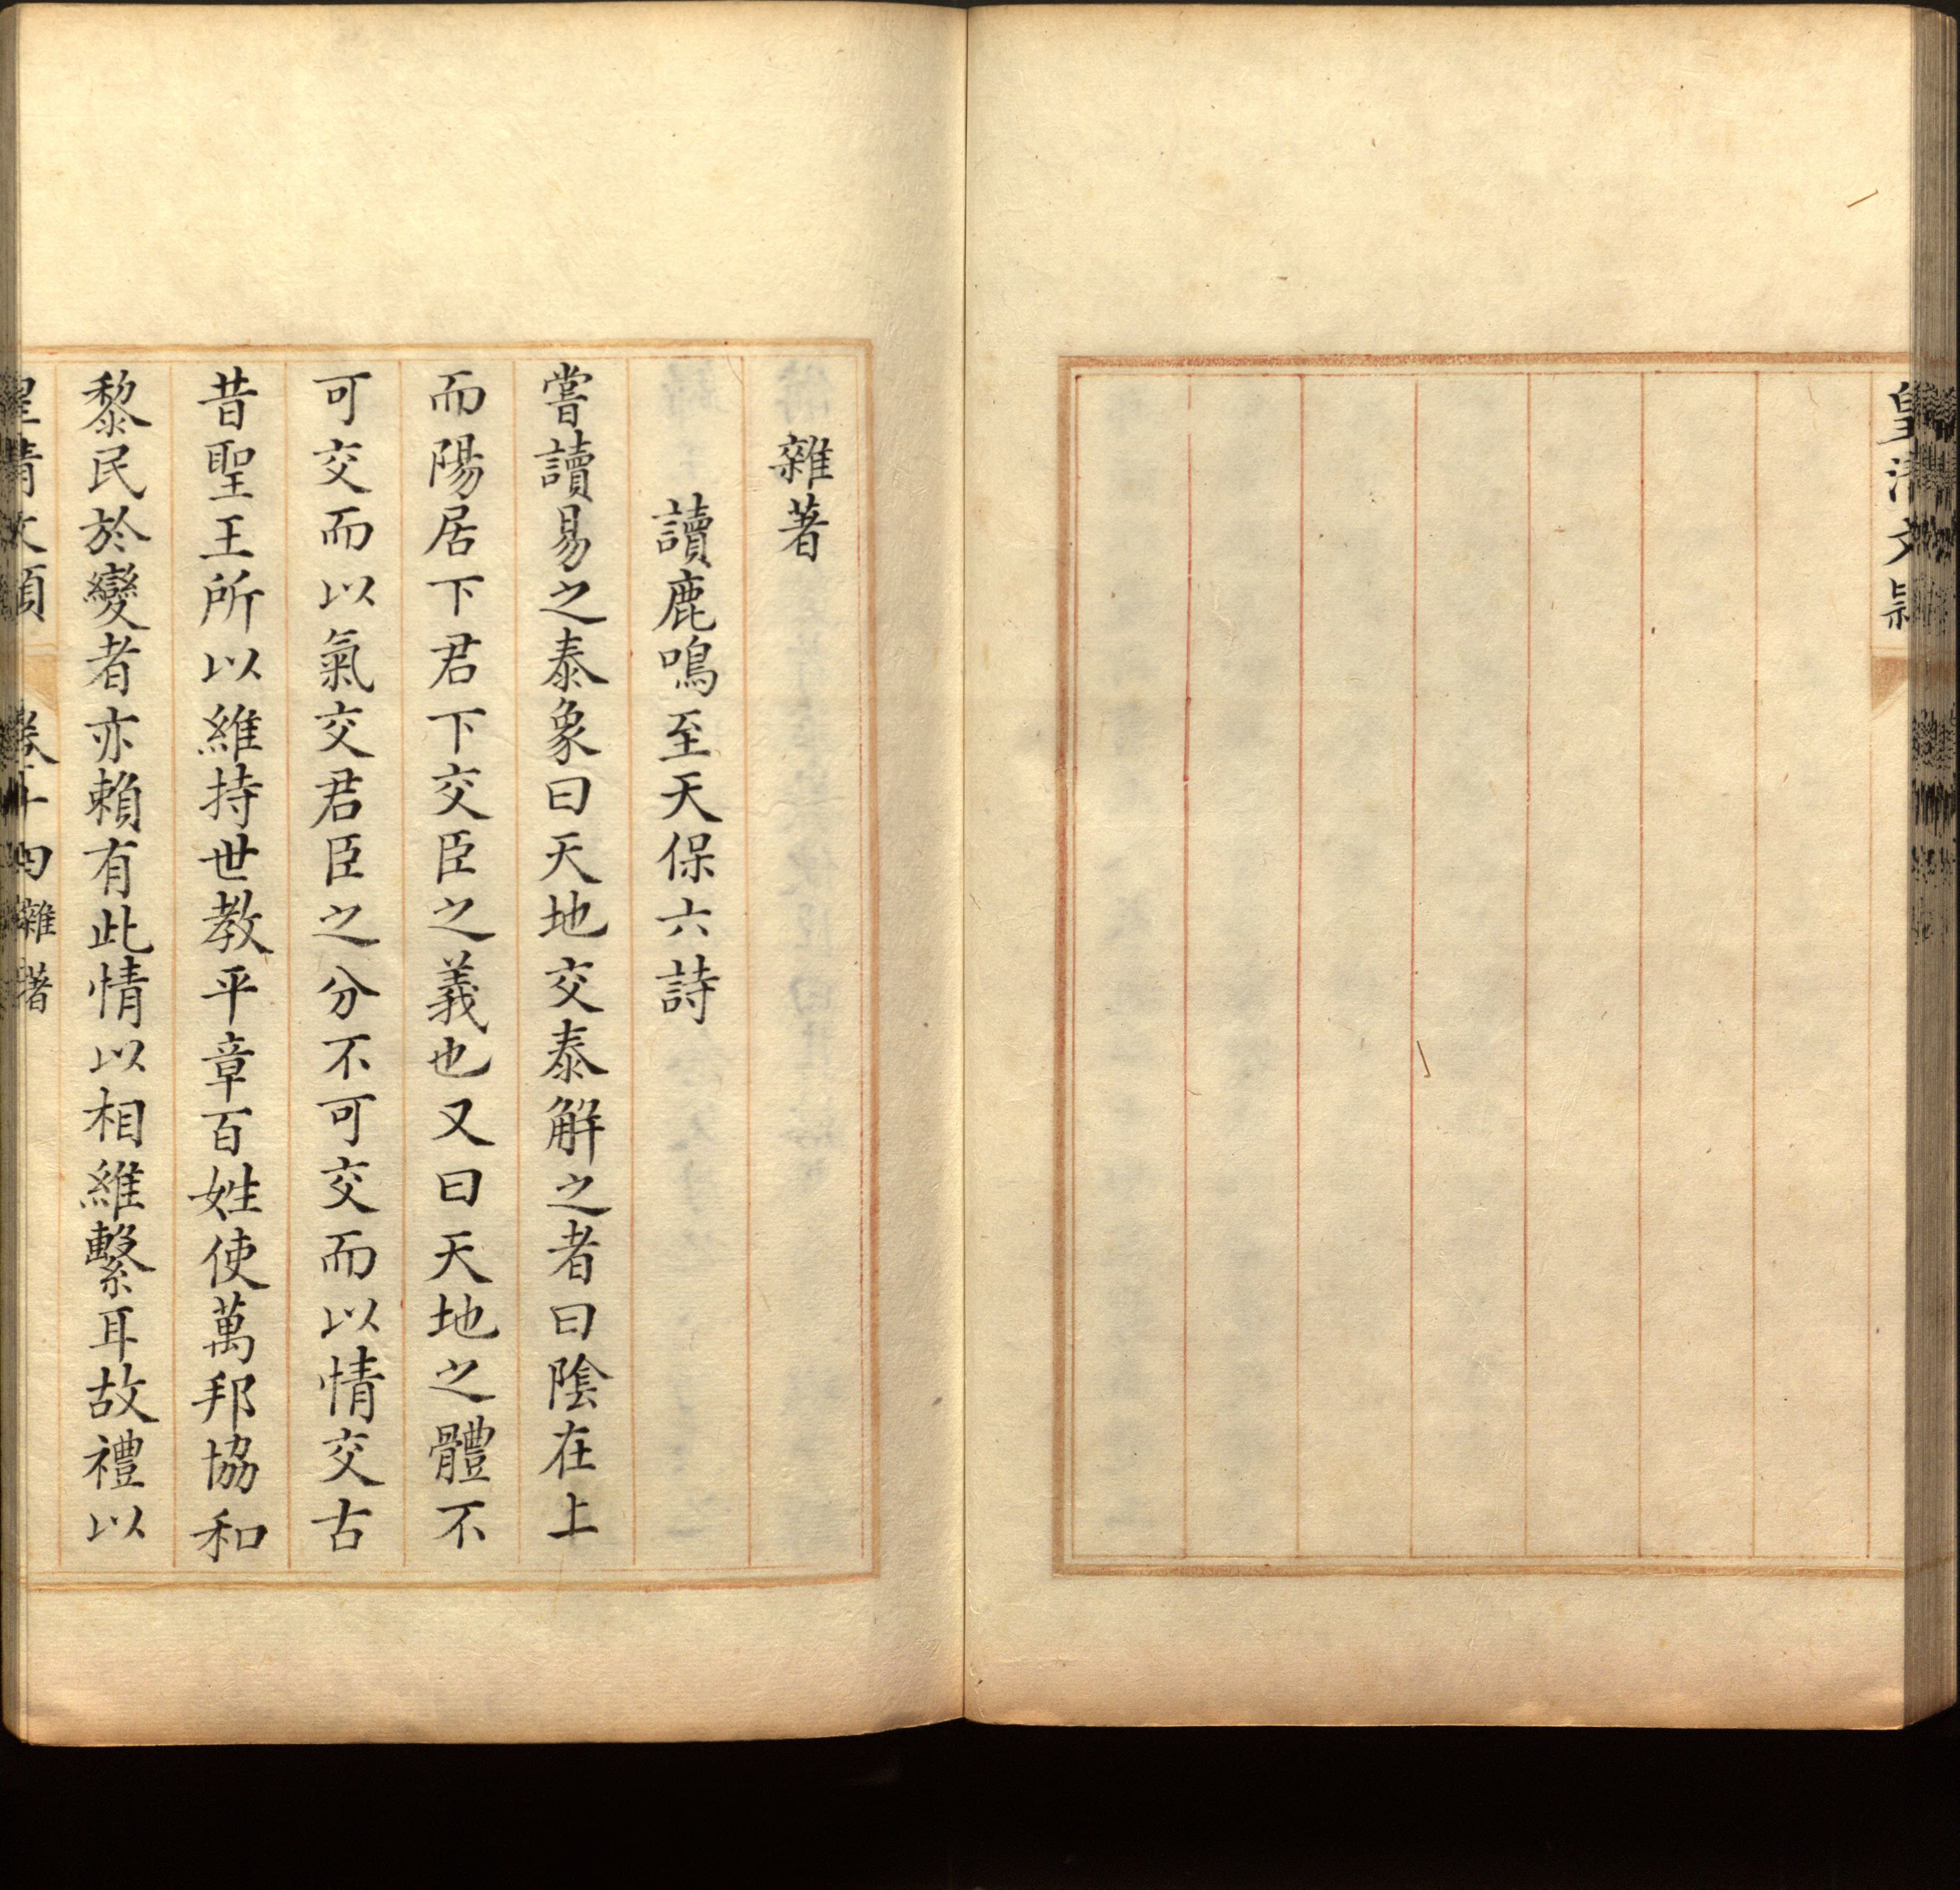 皇清文穎
雜著
讀鹿鳴至天保六詩
嘗讀易之泰象曰天地交泰解之者曰陰在上
而陽居下君下交臣之義也又曰天地之體不
可交而以氣交君臣之分不可交而以情交古
昔聖王所以維持世教平章百姓使萬邦協和
黎民於變者亦賴有此情以相維繫耳故禮以
皇清文頴 卷十四雜著